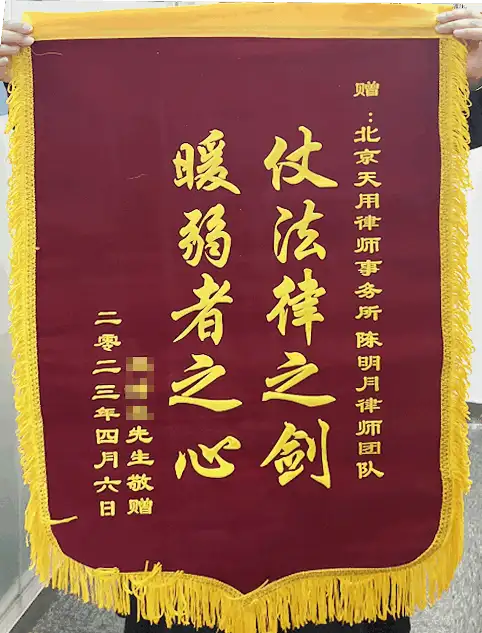 赠：北京天用律师事务所 陈明月律师团队
仗法律之剑
暖弱者之心
先生敬赠
二零二三年四月六日